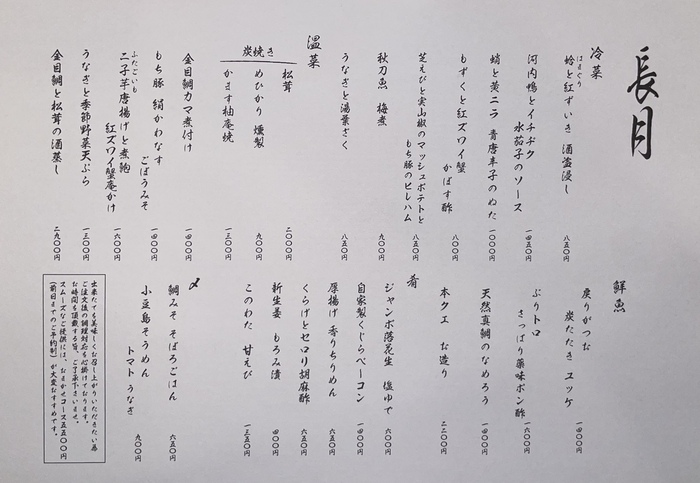 長月
冷菜
蛤と紅ずいき 酒盗浸し 八五〇円
はまぐり
河内鴨とイチヂク
水茄子のソース 一四五〇円
蛸と黄ニラ 青唐辛子のぬた 一〇〇〇円
もずくと紅ズワイ蟹
かぼす酢 八〇〇円
芝えびと実山椒のマッシュポテトと
もち豚のピレハム 八五〇円
秋刀魚 梅煮 九〇〇円
うなぎと湯葉ざく 八五〇円
温菜
炭焼き
松茸 二〇〇〇円
めひかり 燻製 九〇〇円
かます柚庵焼 一三〇〇円
金目鯛カマ煮付け 一四〇〇円
もち豚 絹かわなす
ごぼうみそ 一四〇〇円
ふたごいも
二子芋唐揚げと煮鮑
紅ズワイ蟹庵かけ 一六〇〇円
うなぎと季節野菜天ぷら 一三〇〇円
金目鯛と松茸の酒蒸し 二九〇〇円
鮮魚
戻りがつお
炭たたき ユッケ 一四〇〇円
ぶりトロ
さっぱり薬味ポン酢 一六〇〇円
天然真鯛のなめろう 一四〇〇円
本クエ お造り 二二〇〇円
肴
ジャンボ落花生 塩ゆで 六〇〇円
自家製くじらベーコン 一四〇〇円
厚揚げ 香りちりめん 六五〇円
くらげとセロリ胡麻酢 六五〇円
新生姜 もろみ漬 四五〇円
このわた 甘えび 一三五〇円
〆
鯛みそ そぼろごはん 六五〇円
小豆島そうめん
トマト うなぎ 九〇〇円
出来たてを美味しくお召し上がりいただきたい為
ご注文後の調理対応を心掛けております。
お時間を頂戴する旨、ご了承下さいませ。
スムーズなご提供には、おまかせコース五五〇〇円
(前日までのご予約制) が大変おすすめです。